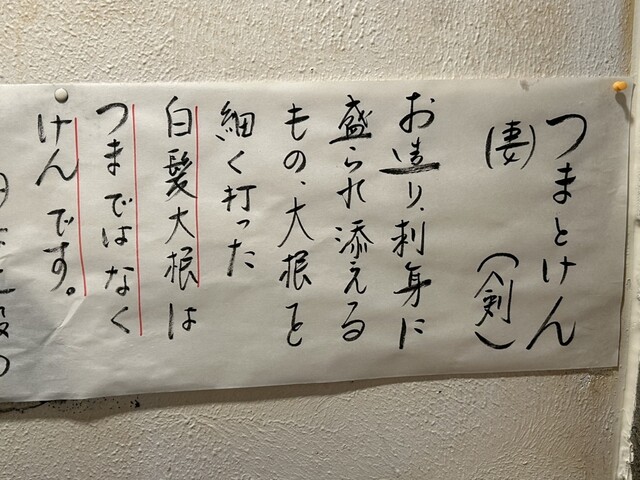 つまとけん
(妻) (剣)
お造り、刺身に
盛られ添える
もの、大根を
細く打った
白髪大根は
つまではなく
けんです。